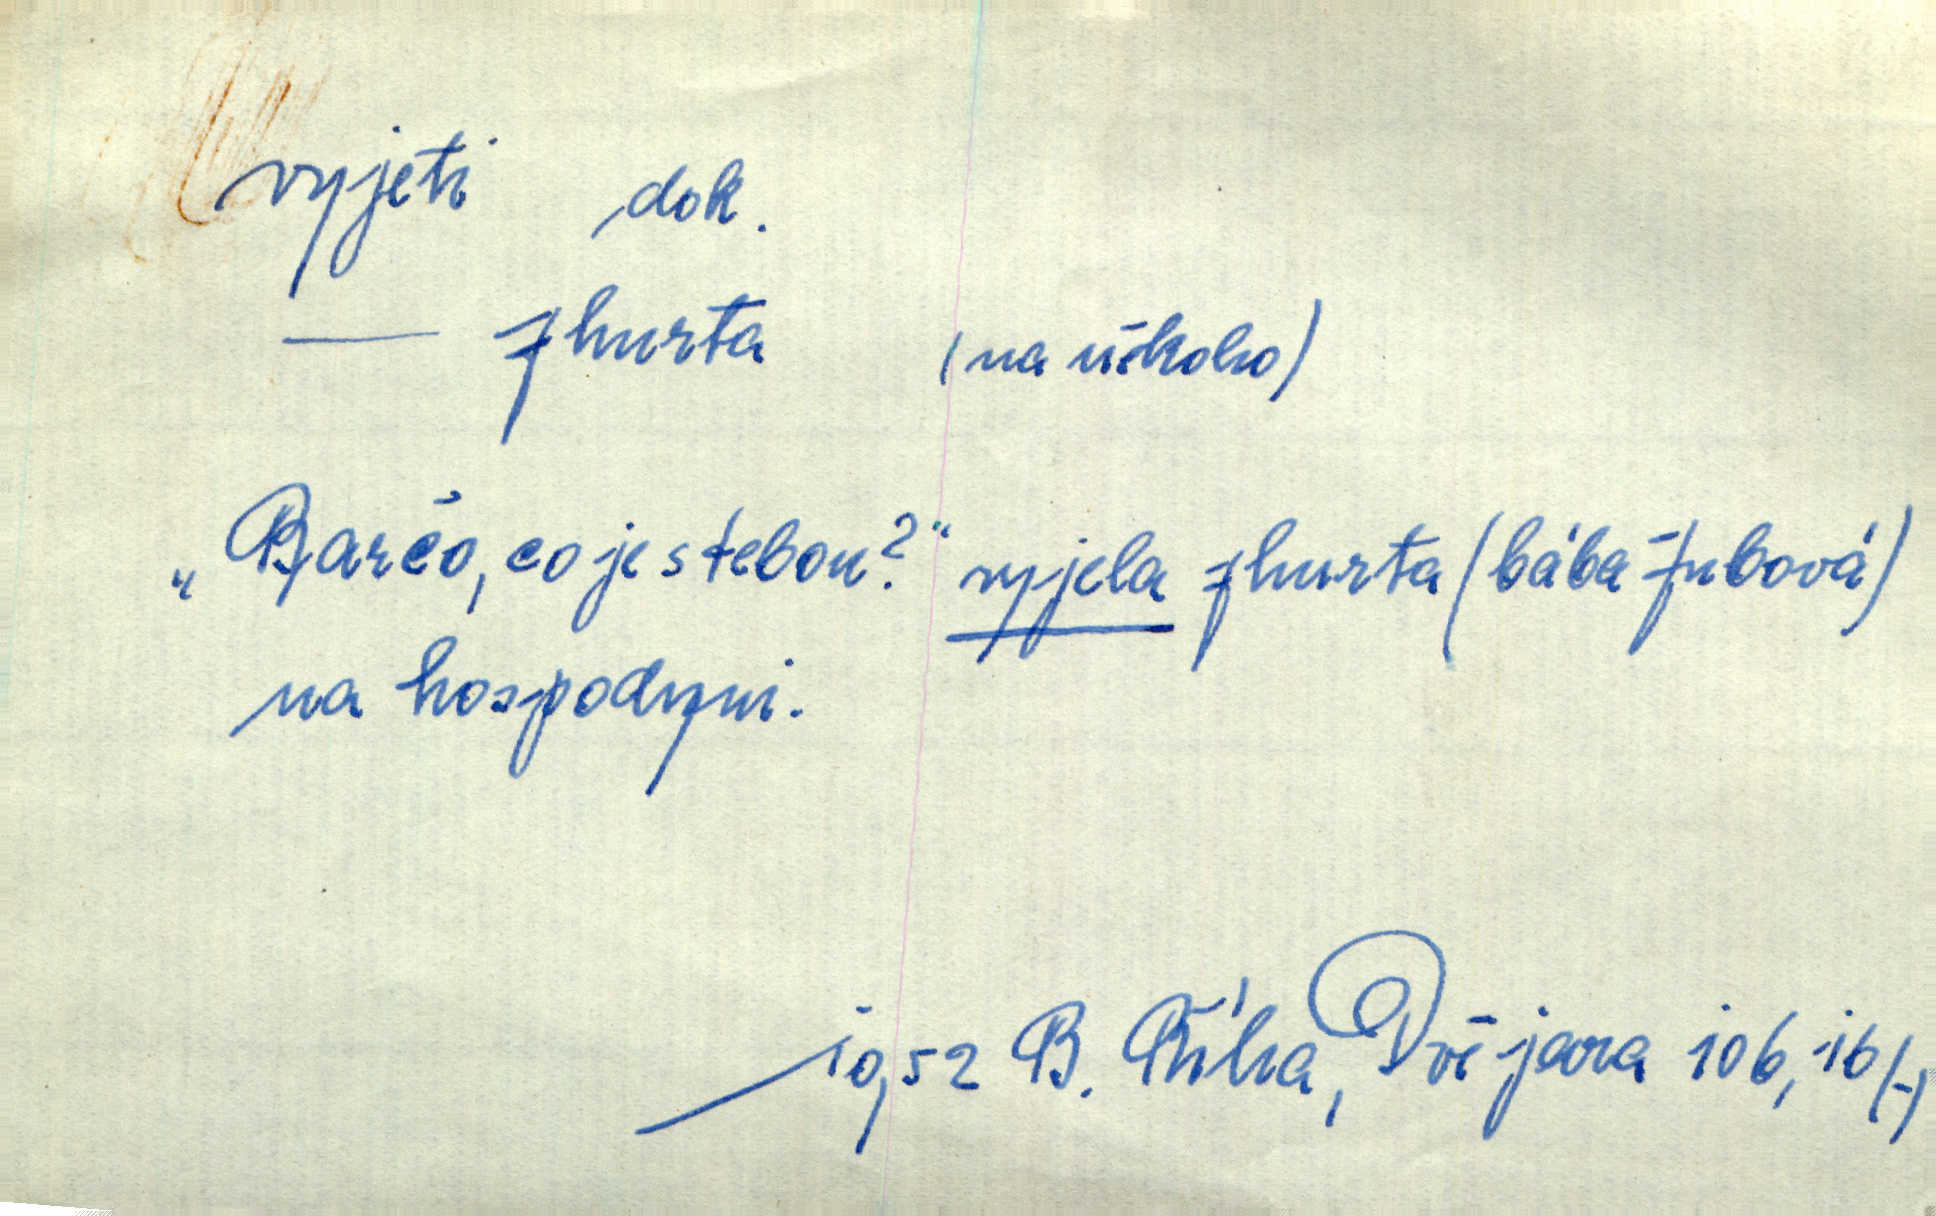 vyjeti dok.
— zhurta (na někoho)
„Barčo, co je s tebou?“ vyjela zhurta (bába Žubová)
na hospodyni.
1952 B. Říha, Dvě jara 106, 16/-/